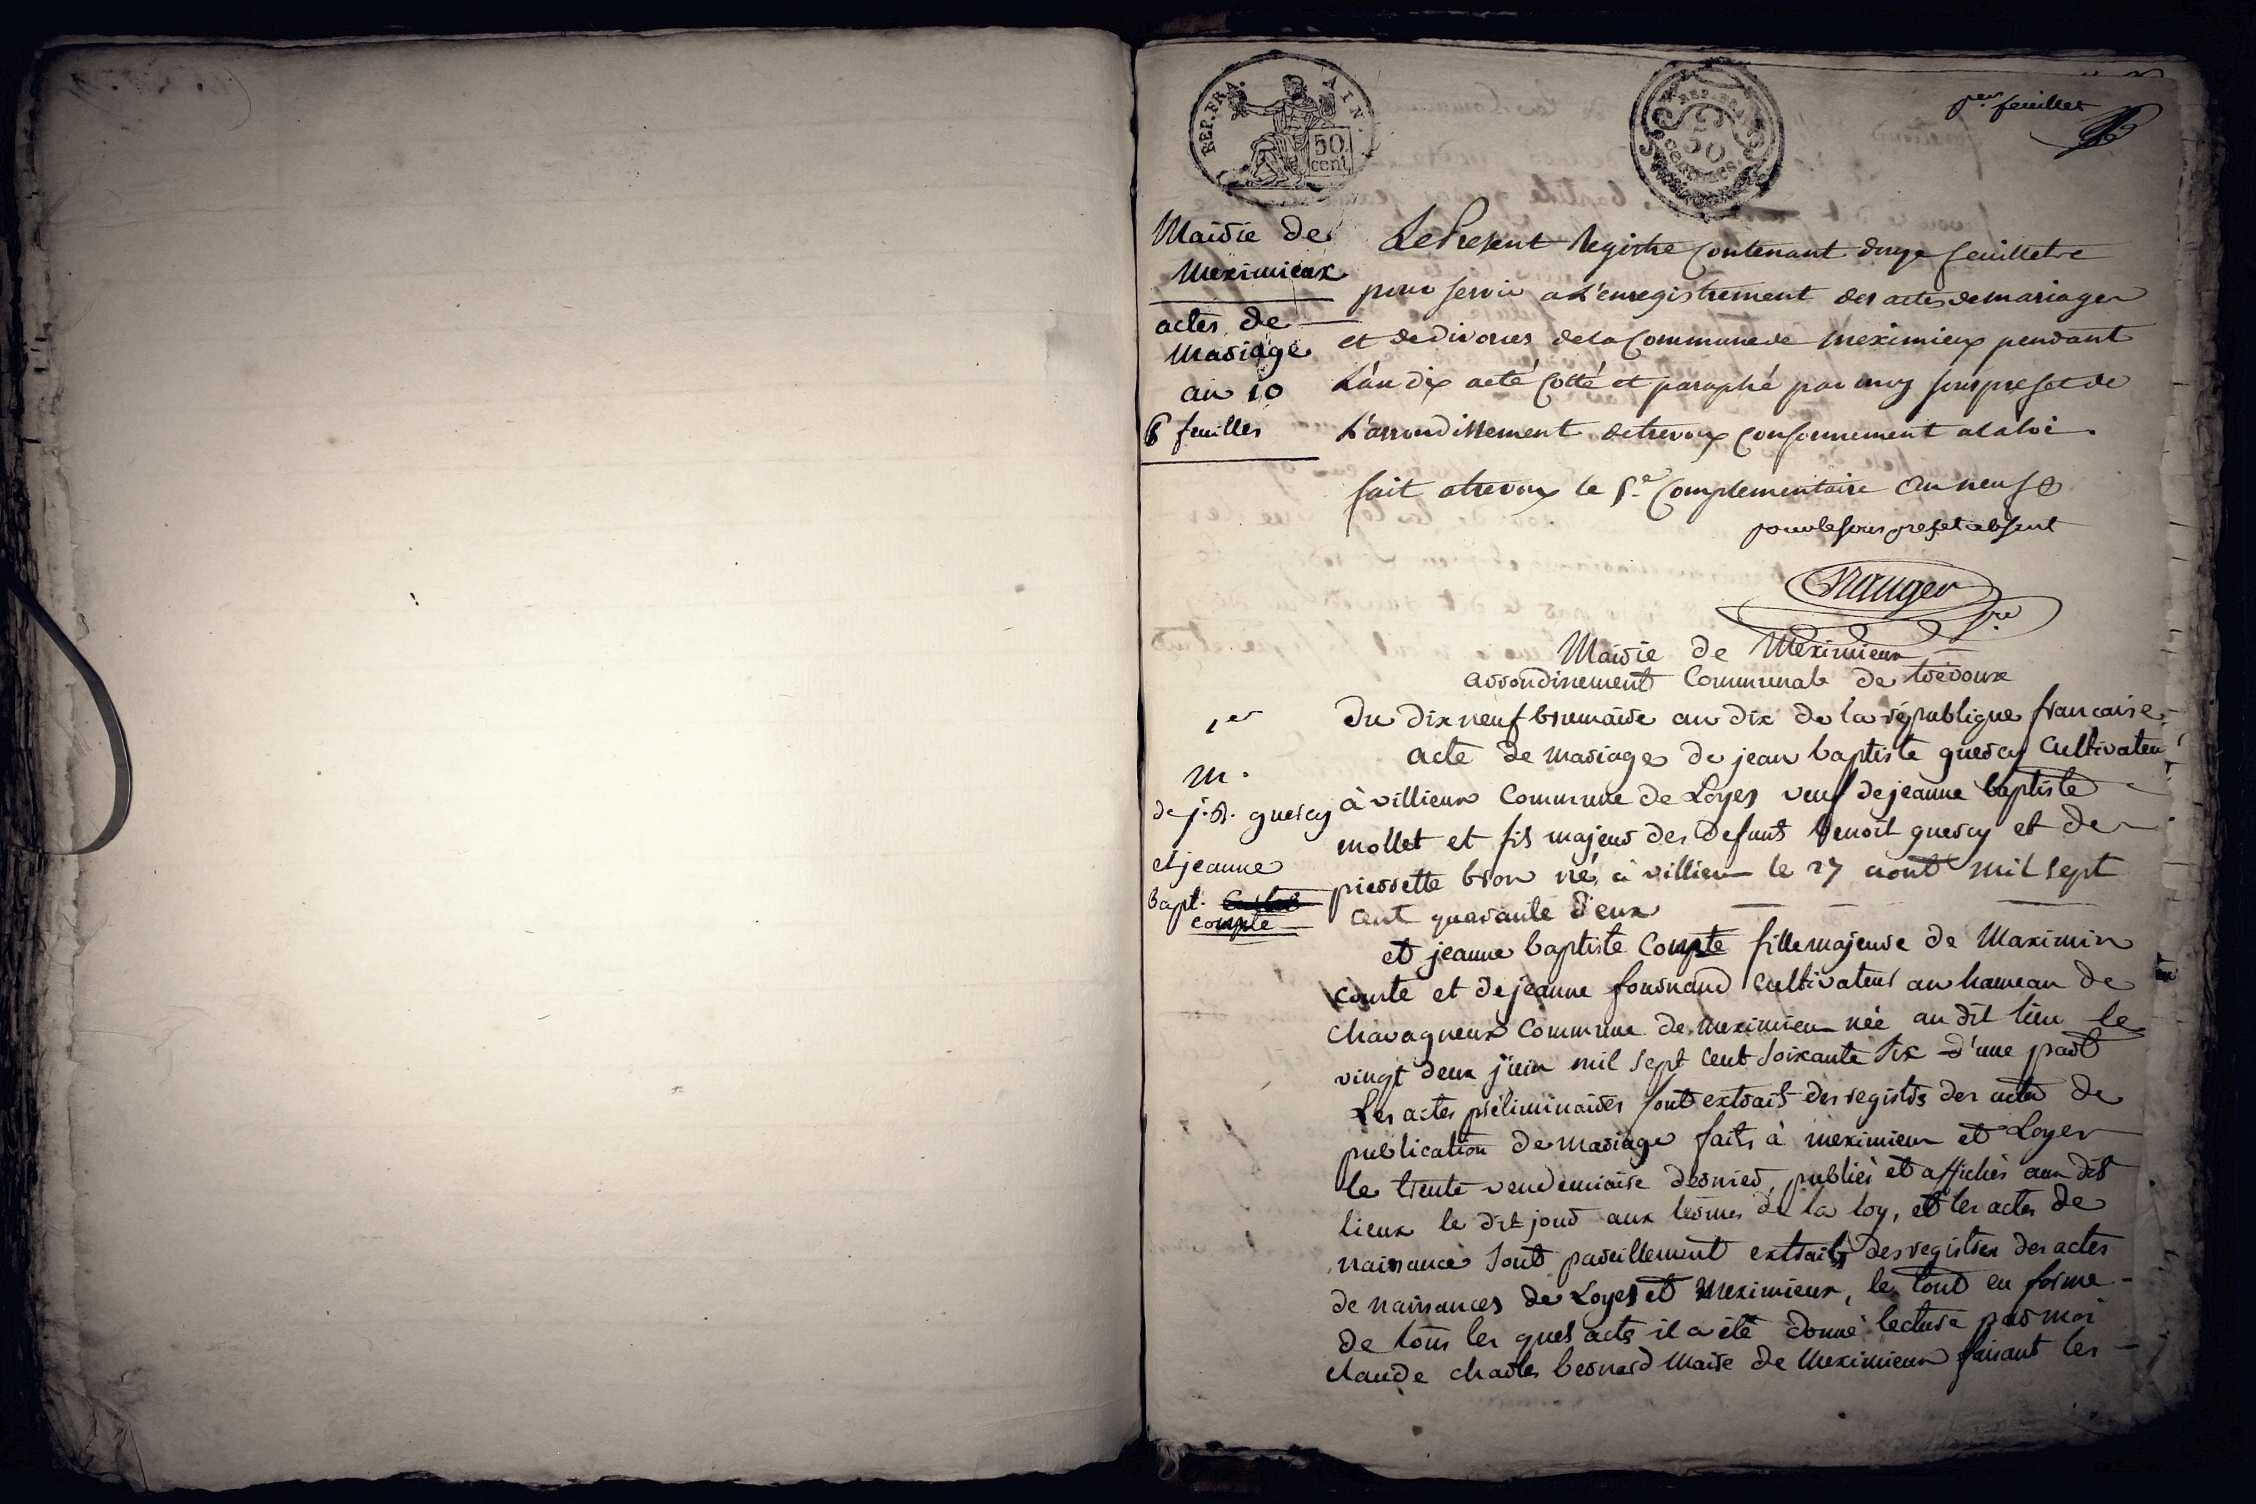 REP. FRA. AIN.
50 cent
REP. FRA.
50 centimes
per feuillet
Mairie de
meximieux
actes de
Mariage
an 10
6 feuilles
Le Present Registre Contenant douze feuillets
pour servir a L'enregistrement des actes de mariages
et de divorces de la Commune de meximieux pendant
L'an dix a été Cotté et paraphé par moy sous prefet de
L'arrondissement de trevoux Conformement a la loi.
fait a trevoux le 5e Complementaire an neuf
pour le sous prefet absent
Mairie de Meximieux
arrondissement Communal de trévoux
1er
m.
de j. B. guercy
et jeanne
bapt.
compte
Du dix neuf brumaire an dix de la république francaise
acte de mariage de jean baptiste guercy Cultivateur
à villieux Commune de Loyes veuf de jeanne baptiste
mollet et fils majeur des defunts benoit guercy et de
pierrette bron né à villieu le 27 aout mil sept
cent quarante deux
et jeanne baptiste Compte fille majeure de Maximin
Comte et de jeanne fournand Cultivateurs au hameau de
chavagneux Commune de meximieu née au dit lieu le
vingt deux juin mil sept cent soixante six d'une part
Les actes préliminaires sont extraits des registres des actes de
publication de mariage faits à meximieux et Loyes
le trente vendemiaire dernier, publiés et affichés aux dits
lieux le dit jour aux termes de la loy, et les actes de
naissance sont pareillement extraits des registres des actes
de naissances de Loyes et Meximieux, le tout en forme
de tous les quels actes il a été donné lecture par moi
claude charles bernard Maire de Meximieux faisant les